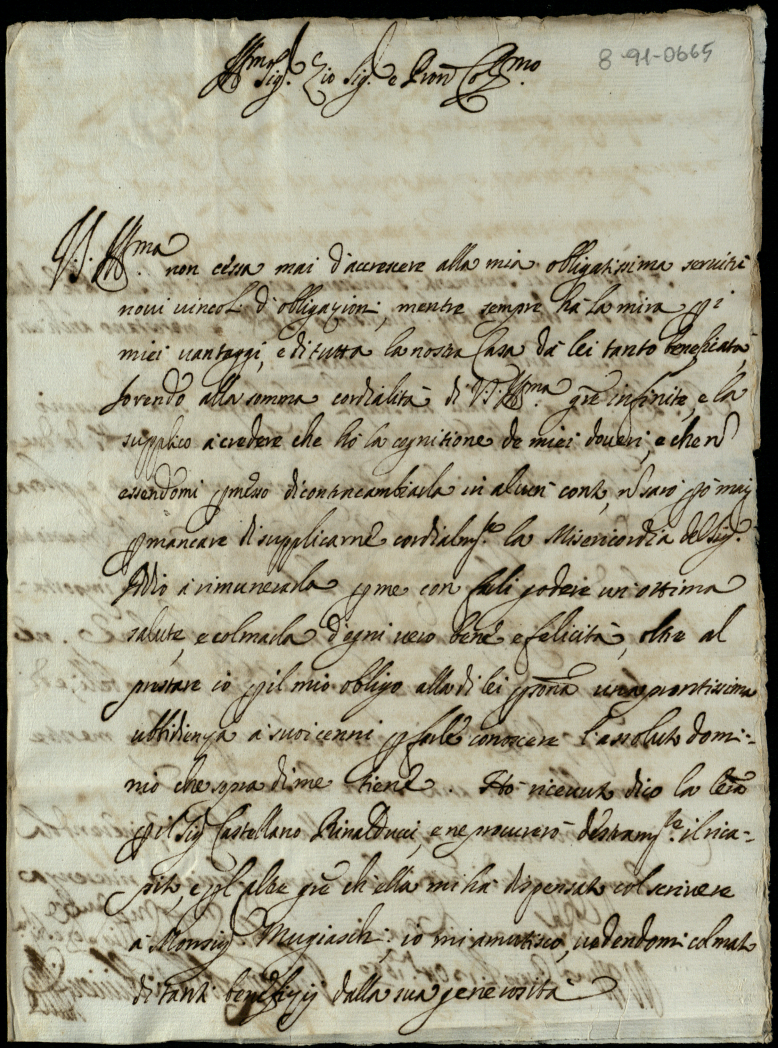 8-91-0665
Ill.mo Sig.r Zio Sig.r e Pron Col.mo
V.S. Ill.ma non cessa mai d'accrescere alla mia obligatissima servitù
novi vincoli d'obligazioni, mentre sempre hà la mira p i
miei vantaggi, e di tutta la nostra Casa dà lei tanto beneficata,
rendo alla somma cordialità di V.S. Ill.ma gr̄e infinite, e la
supplico à credere che hò la cognitione de miei doveri, e che n̄
essendomi pmesso di contracambiarla in alcun conto, n̄ sarò p̄ò mai
p mancare di supplicarne cordialm.te la Misericordia del Sig.r
Iddio à rimunerarla p me con farli godere un'ottima
salute, e colmarla d'ogni vero bene e felicità, oltre al
prestare io p il mio obligo alla di lei psona una prontissima
ubbidienza a suoi cenni p farle conoscere l'assoluto domi-
nio che sopra di me tiene. Hò ricevuto dico la lēra
p il Sig.r Castellano Rinalducci, e ne procurerò destram.te il rica-
pito, e p l'altre gr̄e ch'ella mi hà dispensato col scrivere
à Monsig.r Mugiasch; io mi amutisco, vedendomi colmato
di tanti beneficij dalla sua generosità